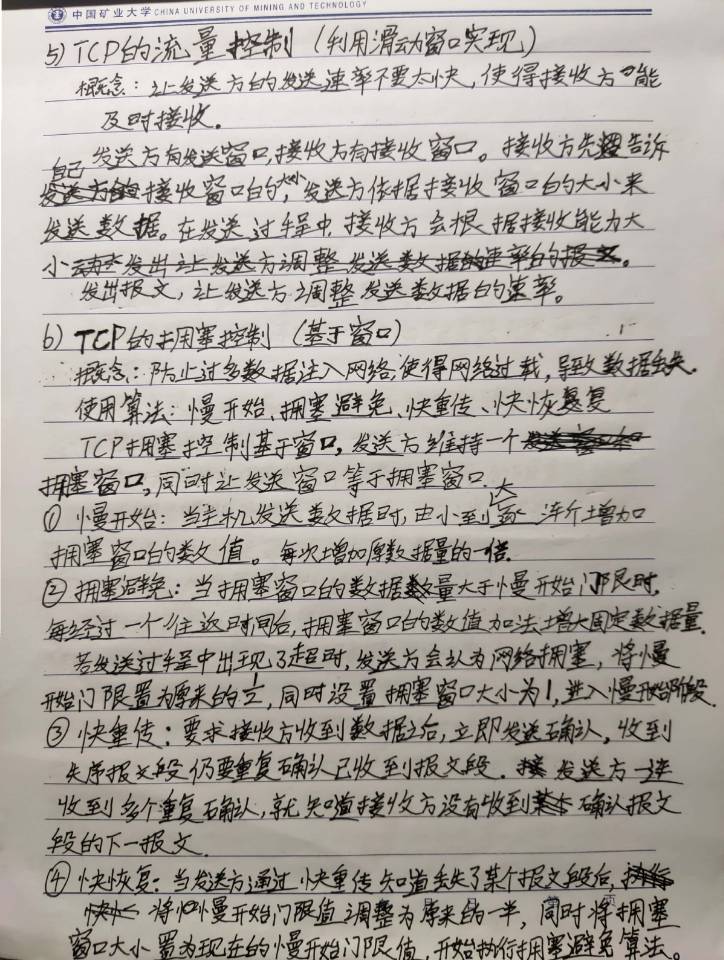 中国矿业大学 CHINA UNIVERSITY OF MINING AND TECHNOLOGY
5) TCP的流量控制（利用滑动窗口实现）
概念：让发送方的发送速率不要太快，使得接收方能
及时接收。
发送方有发送窗口，接收方有接收窗口。接收方先告诉
自己接收窗口的大小，发送方依据接收窗口的大小来
发送数据。在发送过程中，接收方会根据接收能力大
小
发出报文，让发送方调整发送数据的速率。
6) TCP的拥塞控制（基于窗口）
概念：防止过多数据注入网络，使得网络过载，导致数据丢失。
使用算法：慢开始、拥塞避免、快重传、快恢复
TCP拥塞控制基于窗口，发送方维持一个
拥塞窗口，同时让发送窗口等于拥塞窗口。
① 慢开始：当主机发送数据时，由小到大逐渐增加
拥塞窗口的数值。每次增加原数据量的一倍。
② 拥塞避免：当拥塞窗口的数据量大于慢开始门限时，
每经过一个往返时间后，拥塞窗口的数值加法增大固定数据量。
若发送过程中出现了超时，发送方会认为网络拥塞，将慢
开始门限置为原来的1/2，同时设置拥塞窗口大小为1，进入慢开始阶段。
③ 快重传：要求接收方收到数据之后，立即发送确认，收到
失序报文段仍要重复确认已收到报文段。发送方一连
收到多个重复确认，就知道接收方没有收到确认报文
段的下一报文。
④ 快恢复：当发送方通过快重传知道丢失了某个报文段后，
将慢开始门限值调整为原来的一半，同时将拥塞
窗口大小置为现在的慢开始门限值，开始执行拥塞避免算法。